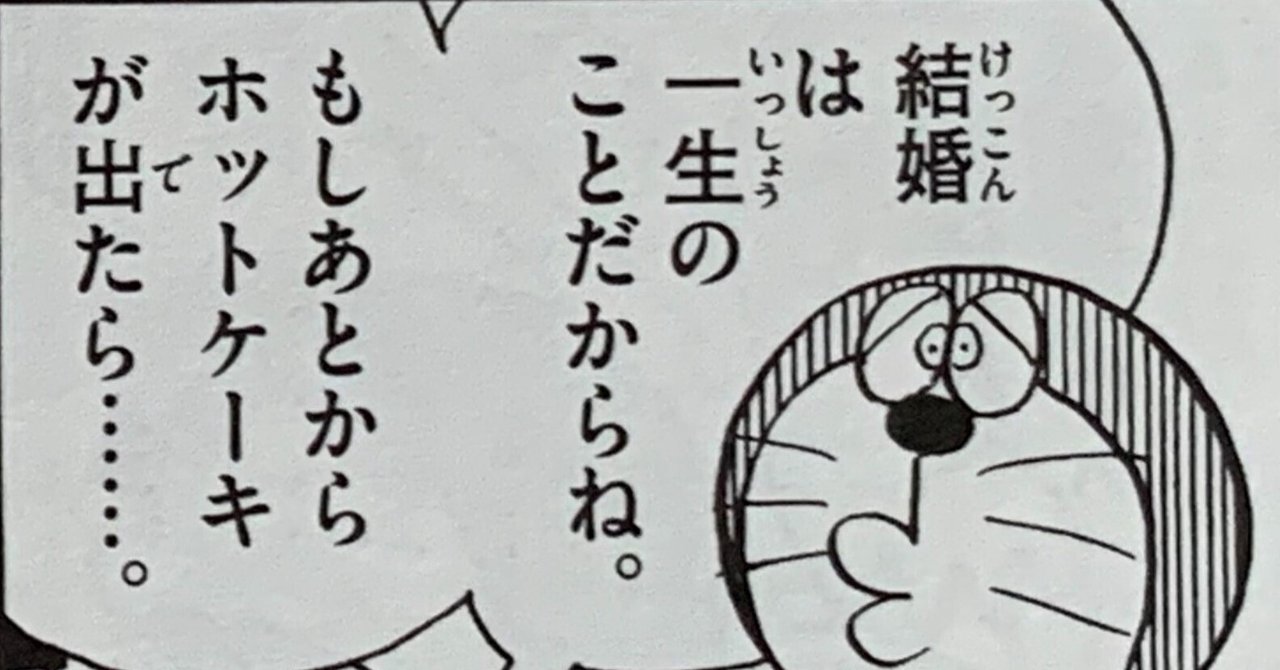 結婚
は
一生の
ことだからね。
もしあとから
ホットケーキ
が出たら………。
けっこん
いっしょう
で